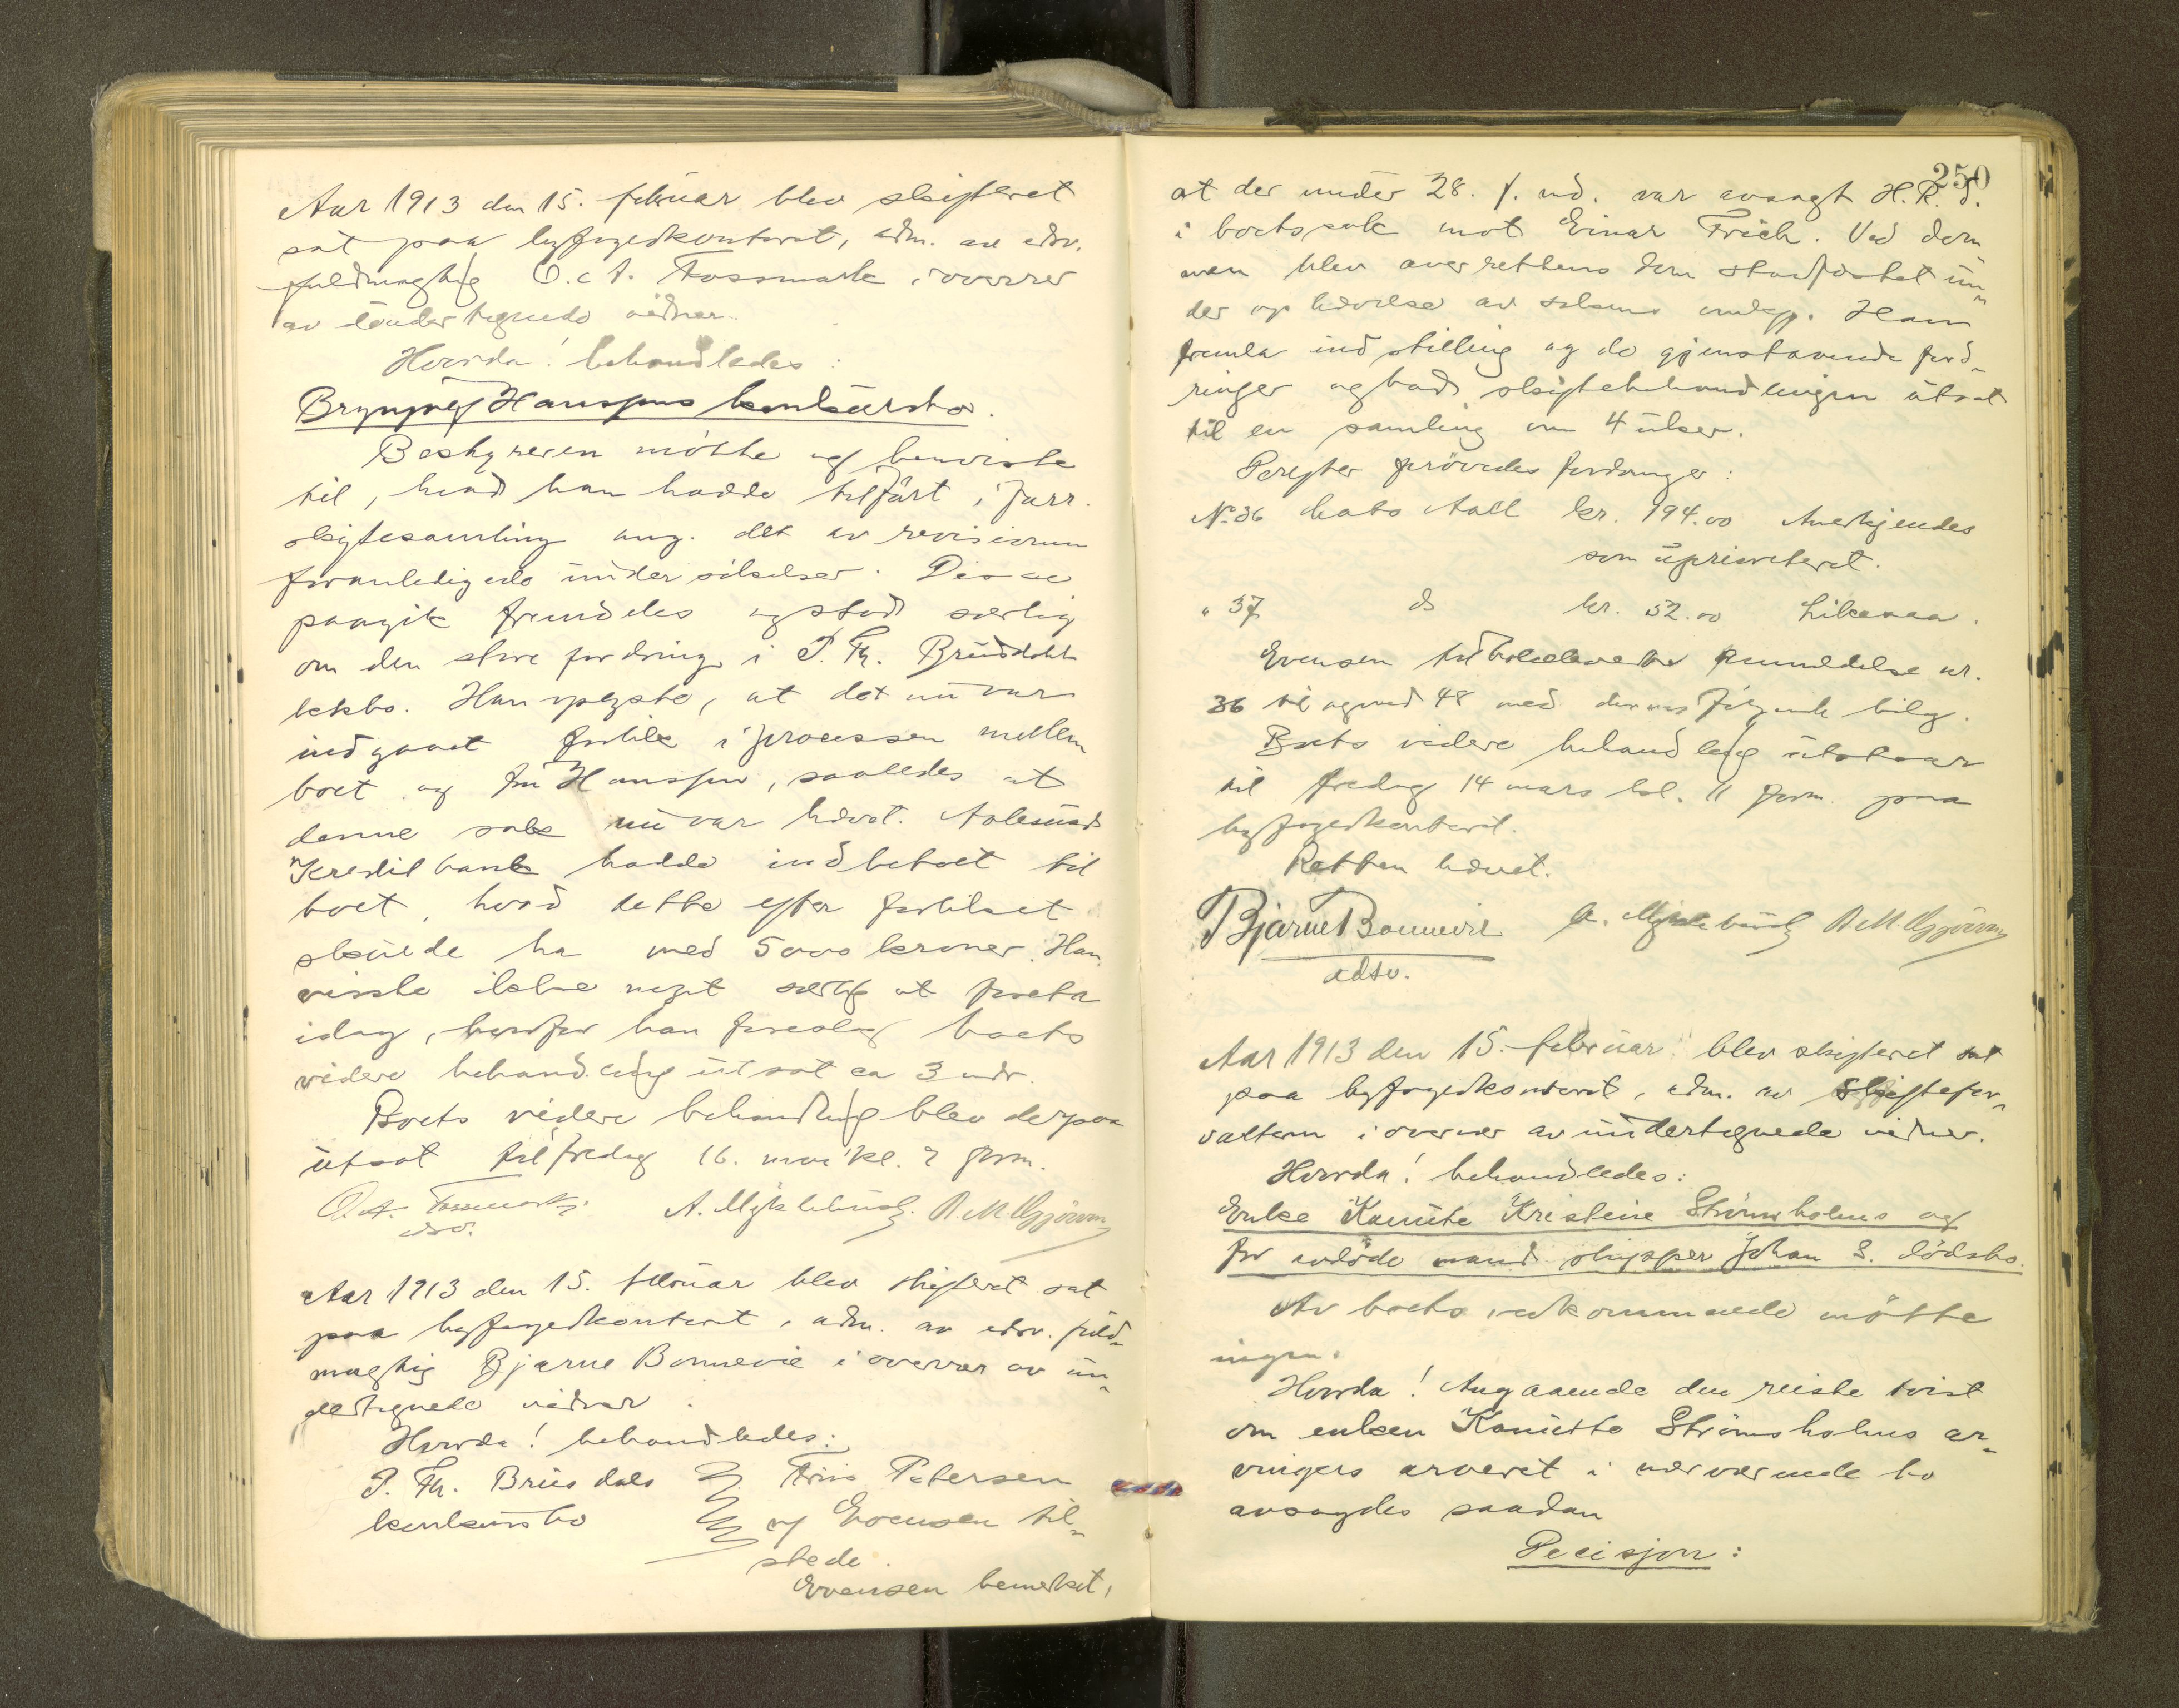 Aar 1913 den 15. februar blev skifteret
sat paa byfogedkontoret, adm. av edsv.
fuldmægtig O. A. Fossmark i overvær
av undertegnede vidner.
Hvorda! behandledes:
Brynjulf Hanssens konkursbo.
Bestyreren møtte og henviste
til, hvad han hadde tilført i forr.
skiftesamling ang. det av revisionen
foranledigede undersøkelser. Disse
paagik fremdeles og stod særlig
om den store fordring i P. Th. Brusdals
kkbo. Han oplyste, at det nu var
indgaaet forlik i processen mellem
boet og fru Hanssen, saaledes at
denne sak nu var hævet. Aalesunds
Kreditbank hadde indbetalt til
boet, hvad dette efter forliket
skulde ha med 5000 kroner. Han
visste ikke noget særlig at foreta
idag, hvorfor han foreslog boets
videre behandling utsat ca 3 mdr.
Boets videre behandling blev derpaa
utsat til fredag 16. mai kl. 9 form.
O. A. Fossmark. A. Myklebust. R. M. Gjørven
edsv.
Aar 1913 den 15. februar blev skifteret sat
paa byfogedkontoret, adm. av edsv. fuld-
mægtig Bjarne Bonnevie i overvær av un-
dertegnede vidner.
Hvorda! behandledes:
P. Th. Brusdals Friis Petersen
konkursbo og Evensen til-
stede.
Evensen bemerket,
250
at der under 28. f. md. var avsagt H.R.d.
i boets sak mot Einar Frich. Ved dom-
men blev overrettens dom stadfæstet un-
der ophævelse av sakens omkp. Han
fremla indstilling og de gjenstaaende ford-
ringer og bad skiftebehandlingen utsat
til en samling om 4 uker.
Derefter prøvedes fordringer:
No 36 Mats Aall kr. 194.00 Anerkjendes
som uprioritert.
" 37 do kr. 52.00 Likesaa.
Evensen tilbakeleverte anmeldelse nr.
36 til og med 48 med dermed følgende bilag.
Boets videre behandling utstaar
til fredag 14 mars kl. 11 form. paa
byfogedkontoret.
Retten hævet.
Bjarne Bonnevie A. Myklebust R. M. Gjørven
edsv.
Aar 1913 den 15. februar blev skifteret sat
paa byfogedkontoret, adm. av skiftefor-
valteren i overvær av undertegnede vidner.
Hvorda! behandledes:
Enke Kanutte Kristine Strømsholms og
før avdøde mand skipper Johan S. dødsbo.
Av boets vedkommende møtte
ingen.
Hvorda! Angaaende den reiste tvist
om enken Kanutte Strømsholms ar-
vingers arveret i nærværende bo
avsagdes saadan
Decisjon: